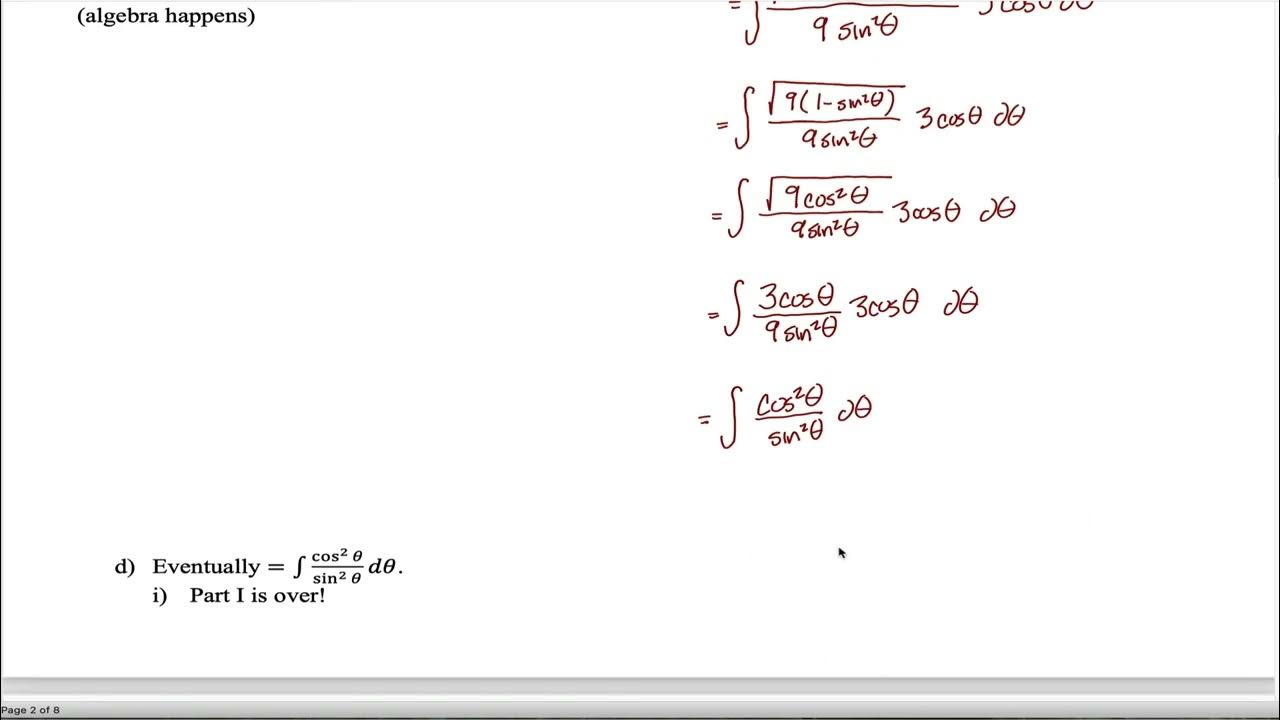 (algebra happens)
= ∫ 9 sin²θ
= ∫ √(9(1-sin²θ)) / 9sin²θ 3cosθ ∂θ
= ∫ √(9cos²θ) / 9sin²θ 3cosθ ∂θ
= ∫ 3cosθ / 9sin²θ 3cosθ ∂θ
= ∫ cos²θ / sin²θ ∂θ
d) Eventually = ∫ cos² θ / sin² θ dθ.
i) Part I is over!
Page 2 of 8